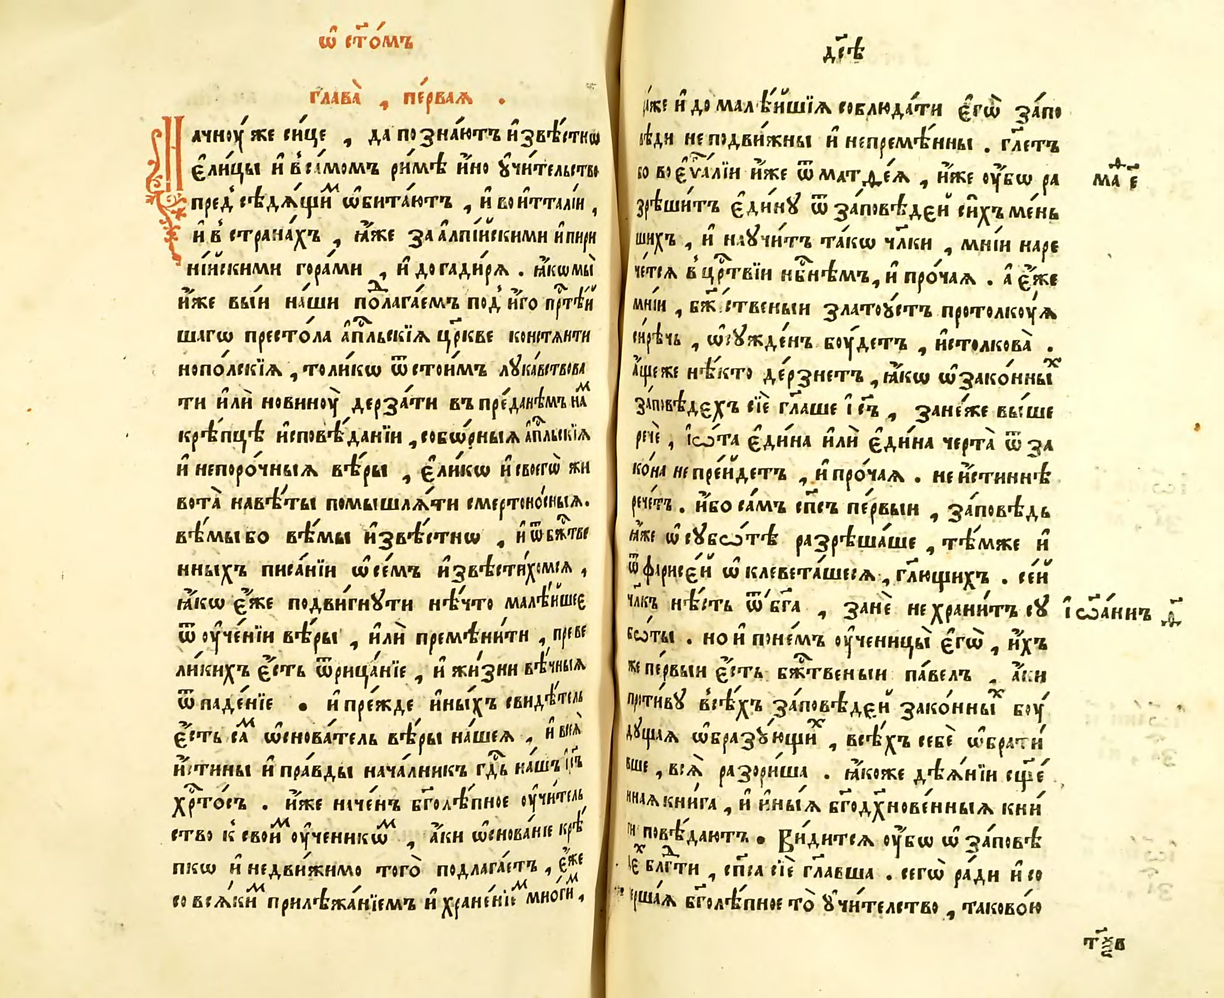 ѿ ст҃о́мъ
глава̀ , пе́рвая .
Начноу́ же си́це , да познаю́тъ и҆звѣ́стнѡ
є҆ли́цы и҆ в са́момъ ри́мѣ и҆́но у҆чи́тельство
предсѣдѧ́щим ѡ҆бита́ютъ , и҆ во и҆тта́лїи ,
и҆ в страна́хъ , ꙗ҆́же за а҆лпі́йскими и҆ пири
ні́йскими гора́ми , и҆ до гади́рѧ . ꙗ҆́кѡ мы̀
и҆́же вы́и на́ши полага́емъ под и҆́го прⷭ҇тѣ́й
шагѡ престо́ла а҆пⷭ҇льскїѧ цр҃кве констѧнти
нопо́лскїѧ , толи́кѡ ѿстои́мъ лука́вствова
ти и҆лѝ новиноу̀ дерза́ти въ пре́данѣмъ нам
крѣ́пцѣ и҆сповѣ́данїи , собѡ́рныѧ а҆пⷭ҇льскїѧ
и҆ непоро́чныѧ вѣ́ры , є҆ли́кѡ и҆ своегѡ̀ жи
вота̀ навѣ́ты помышлѧ́ти смертоно́сныѧ .
вѣ́мы бо вѣ́мы и҆звѣ́стнѡ , и҆ ѿ бжⷭ҇тве
нныхъ писа́нїи ѡ҆ се́мъ и҆звѣсти́хомсѧ ,
ꙗ҆́кѡ є҆́же подви́гнути нѣ́что малѣ́йшее
ѿ оу҆че́нїи вѣ́ры , и҆лѝ премѣни́ти , преве
ли́кихъ є҆́сть ѿрица́нїе , и҆ жи́зни вѣ́чныѧ
ѿпаде́нїе . и҆ пре́жде и҆ны́хъ свидѣ́тель
є҆́сть сам ѡ҆снова́тель вѣ́ры на́шеѧ , и҆ всеѧ̀
и҆́стины и҆ пра́вды нача́лникъ гдⷭ҇ь на́шъ і҆и҃съ
хрⷭ҇то́съ . и҆́же ниче́н бг҃олѣ́пное оу҆чи́тель
ство к свои́м оу҆ченикѡ́м , а҆́ки ѡ҆снова́нїе крѣ́
пкѡ и҆ недви́жимо того̀ подлага́етъ , є҆́же
со всѧ́ким прилѣжа́нїемъ и҆ хране́нїем мно́гим ,
дс҃е
ꙗ҆́же и҆ до малѣ́йшїѧ соблюда́ти є҆гѡ̀ за́по
вѣди неподви́жны и҆ непремѣ́нны . гл҃етъ
бо во є҆ѵⷢ҇а́лїи и҆́же ѿ матѳе́ѧ , и҆́же оу҆́бѡ ра
зрѣши́тъ є҆ди́ну ѿ за́повѣдей си́хъ ме́нь
шихъ , и҆ научи́тъ та́кѡ чл҃ки , мні́и наре
че́тсѧ в црⷭ҇твїи нбⷭ҇нѣмъ , и҆ про́чаѧ . а҆ є҆́же
мні́и , бжⷭ҇ственыи златоу́стъ протолкоу́ѧ
си́рѣчь , ѡ҆су́жденъ боу́детъ , и҆столкова̀ .
а҆́ще же нѣ́кто де́рзнетъ , ꙗ҆́кѡ ѡ҆ зако́нных
за́повѣдехъ сїѐ гл҃аше і҆и҃съ , зане́же вы́ше
речѐ , і҆ѡ́та є҆ди́на и҆лѝ є҆ди́на черта̀ ѿ за
ко́на не пре́йдетъ , и҆ про́чаѧ . не и҆́стиннѣ
рече́тъ . и҆́бо са́мъ сп҃съ пе́рвыи , за́повѣдь
ꙗ҆́же ѡ҆ субѡ́тѣ разрѣша́ше , тѣ́мже и҆
ѿ фарисе́й ѡ҆клевета́шесѧ , гл҃ющихъ . се́й
чл҃къ нѣ́сть ѿ бг҃а , занѐ не храни́тъ су
бѡ́ты . но и҆ по не́мъ оу҆ченицы̀ є҆гѡ̀ , и҆́хъ
же пе́рвыи є҆́сть бжⷭ҇твеныи па́велъ , а҆́ки
проти́ву всѣ́хъ за́повѣдей зако́нных боу́
дущаѧ ѡ҆бразу́ющих , всѣ́хъ себѐ ѡ҆брати́
вше , всѧ̀ разори́ша . ꙗ҆́коже дѣѧ́нїи сщ҃е́
ннаѧ кни́га , и҆ и҆ны́ѧ бг҃одх҃нове́нныѧ кни́
ги повѣ́даютъ . Ви́дитсѧ оу҆́бѡ ѡ҆ за́повѣ
дех блгⷣти , сп҃са сїѐ гл҃авша . сегѡ̀ ра́ди и҆ со
верша́ѧ бг҃олѣ́пное то̀ у҆чи́телство , таково́ю
маⷴ е҃
і҆ѡа́ннъ ѳ҃
тх҃в